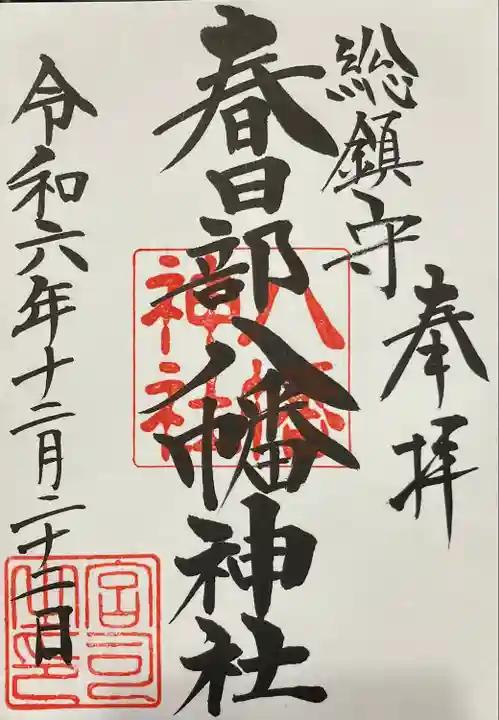 奉拝
総鎮守
春日部八幡神社
八幡神社
令和六年十二月二十二日
宮司之印